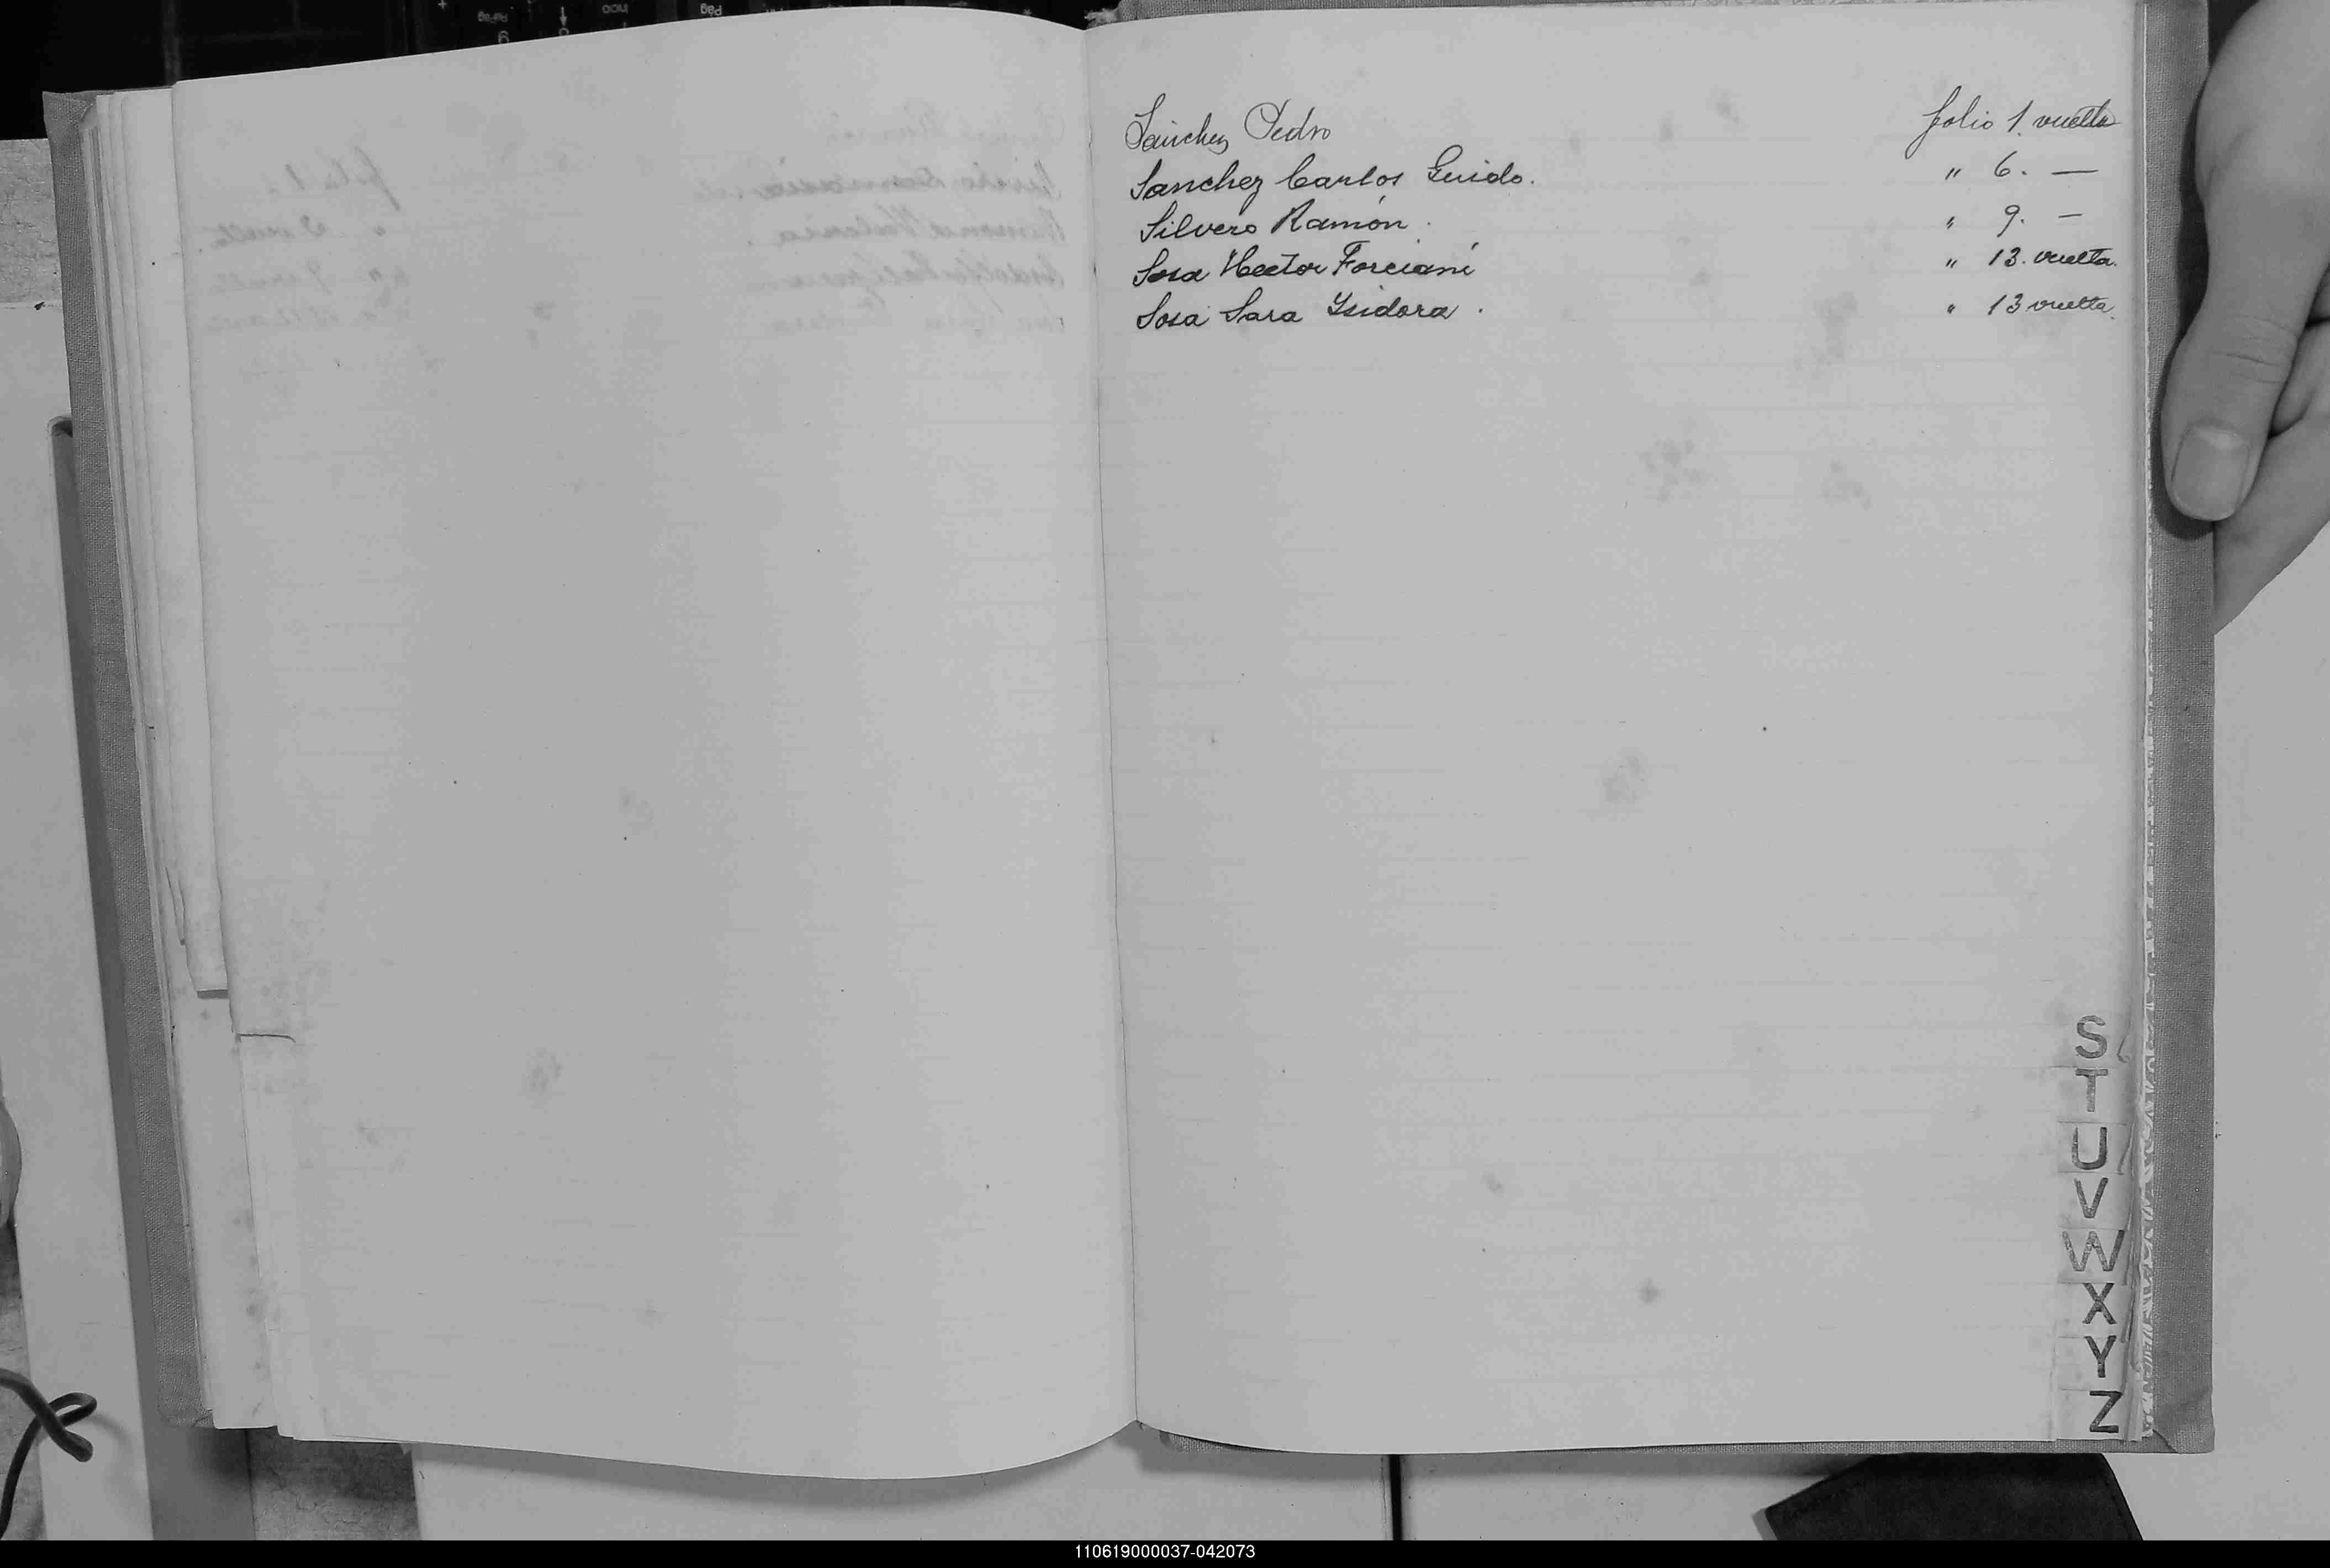 Sánchez Pedro folio 1. vuelta
Sanchez Carlos Guido. " 6. —
Silvero Ramón. " 9. —
Sosa Hector Forciani " 13. vuelta.
Sosa Sara Ysidora. " 13 vuelta.
S
T
U
V
W
X
Y
Z
110619000037-042073